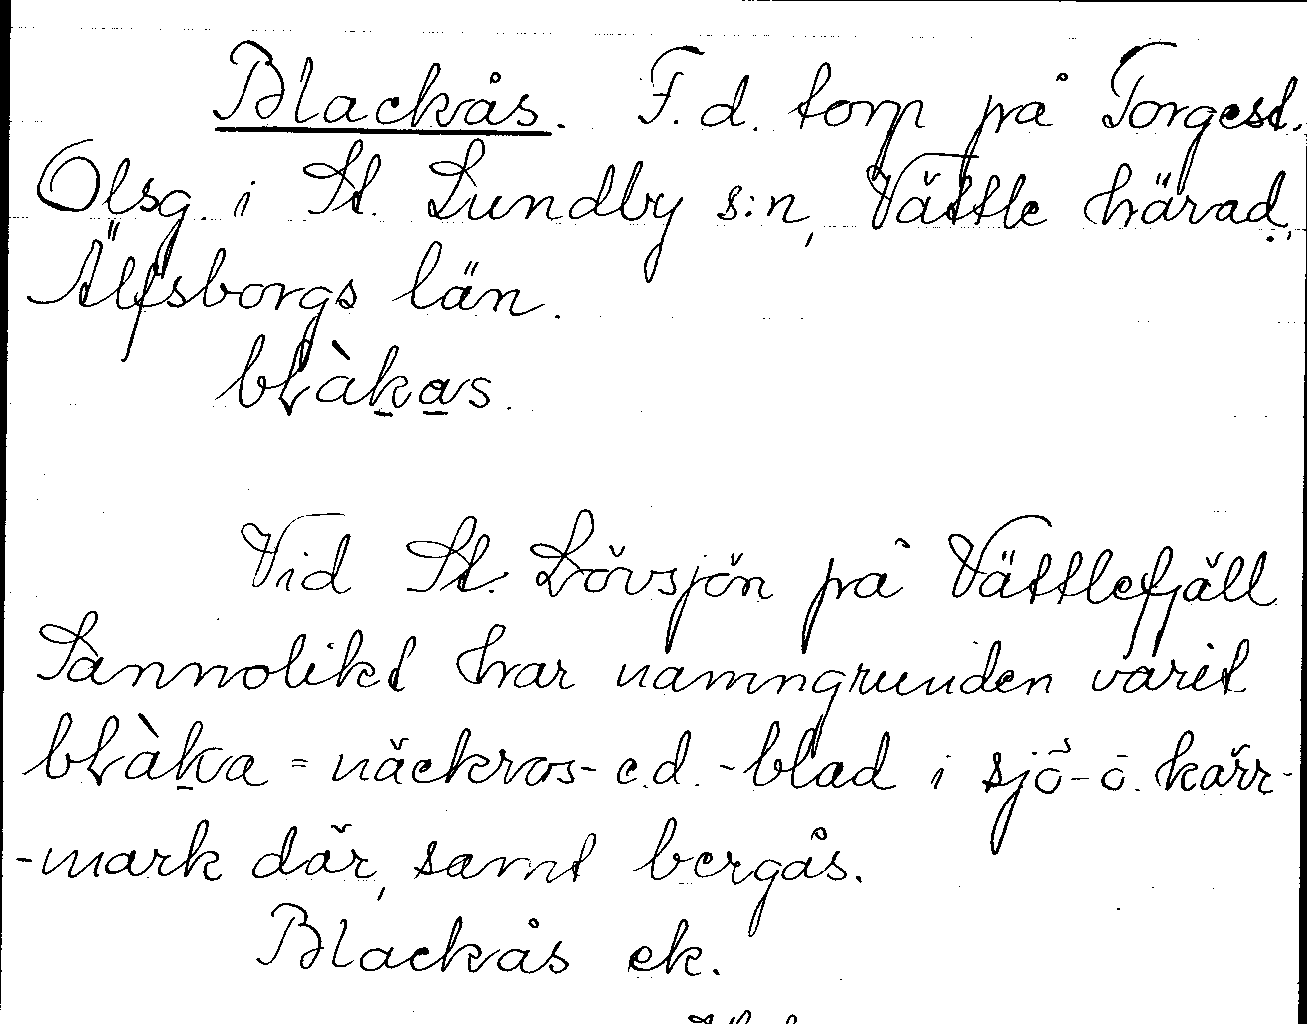 Blackås. F.d. torp på Torgest.
Olsg. i St. Lundby s:n, Vättle härad,
Älfsborgs län.
błàkas.
Vid St. Lövsjön på Vättlefjäll
Sannolikt har namngrunden varit
błàka = näckros- e.d. -blad i sjö- o. kärr-
-mark där, samt bergås.
Blackås ek.